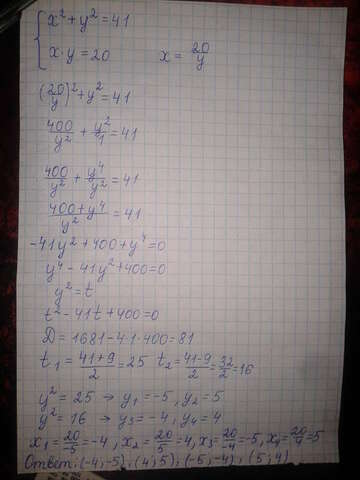 { x² + y² = 41
x · y = 20    x = 20/y
(20/y)² + y² = 41
400/y² + y²/1 = 41
400/y² + y⁴/y² = 41
(400 + y⁴)/y² = 41
-41y² + 400 + y⁴ = 0
y⁴ - 41y² + 400 = 0
y² = t
t² - 41t + 400 = 0
D = 1681 - 4·1·400 = 81
t₁ = (41+9)/2 = 25  t₂ = (41-9)/2 = 32/2 = 16
y² = 25 → y₁ = -5, y₂ = 5
y² = 16 → y₃ = -4, y₄ = 4
x₁ = 20/-5 = -4, x₂ = 20/5 = 4, x₃ = 20/-4 = -5, x₄ = 20/4 = 5
Ответ: (-4; -5); (4; 5); (-5; -4); (5; 4)